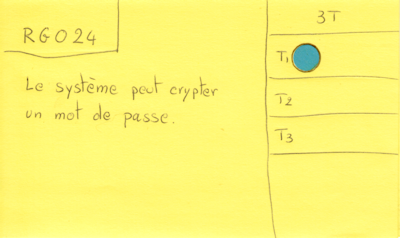 RG024
Le système peut crypter
un mot de passe.
3T
T1
T2
T3